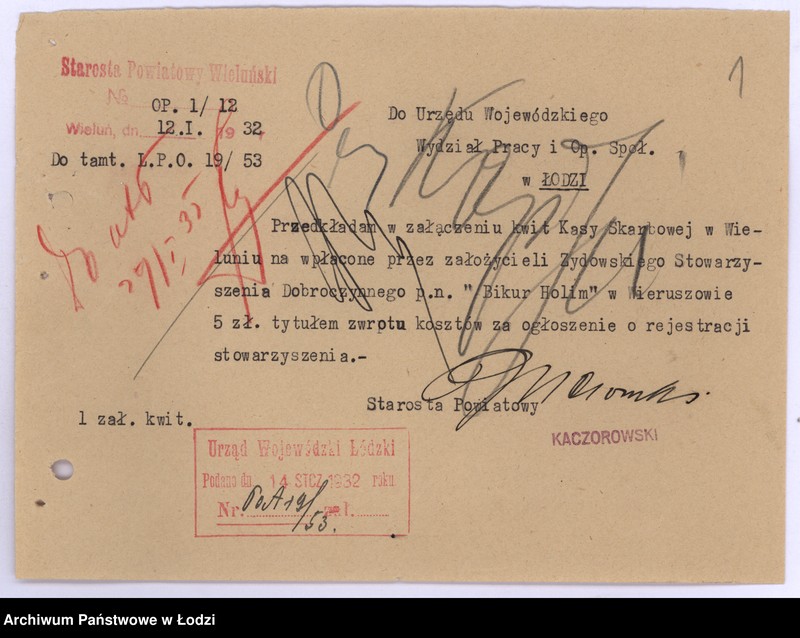 1
Starosta Powiatowy Wieluński
№ OP. 1/ 12
Wieluń, dn. 12.I. 19 32
Do tamt. L.P.O. 19/ 53
Do Urzędu Wojewódzkiego
Wydział Pracy i Op. Społ.
w ŁODZI
Przedkładam w załączeniu kwit Kasy Skarbowej w Wie-
luniu na wpłacone przez założycieli Żydowskiego Stowarzy-
szenia Dobroczynnego p.n. " Bikur Holim" w Wieruszowie
5 zł. tytułem zwrptu kosztów za ogłoszenie o rejestracji
stowarzyszenia.-
Starosta Powiatowy
KACZOROWSKI
1 zał. kwit.
Urząd Wojewódzki Łódzki
Podano dn. 14 STCZ 1932 roku
Nr. 19/53. zał.
Archiwum Państwowe w Łodzi